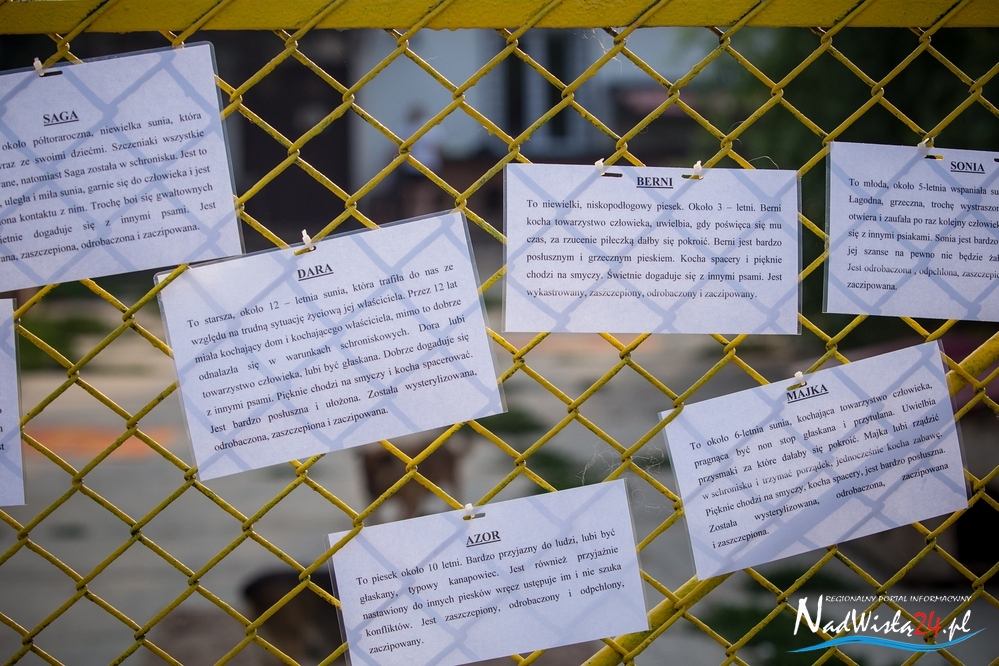 SAGA
około półtoraroczna, niewielka sunia, która
wraz ze swoimi dziećmi. Szczeniaki wszystkie
ane, natomiast Saga została w schronisku. Jest to
, uległa i miła sunia, garnie się do człowieka i jest
ona kontaktu z nim. Trochę boi się gwałtownych
ietnie dogaduje się z innymi psami. Jest
ana, zaszczepiona, odrobaczona i zaczipowana.
DARA
To starsza, około 12 – letnia sunia, która trafiła do nas ze
względu na trudną sytuację życiową jej właściciela. Przez 12 lat
miała kochający dom i kochającego właściciela, mimo to dobrze
odnalazła się w warunkach schroniskowych. Dora lubi
towarzystwo człowieka, lubi być głaskana. Dobrze dogaduje się
z innymi psami. Pięknie chodzi na smyczy i kocha spacerować.
Jest bardzo posłuszna i ułożona. Została wysterylizowana,
odrobaczona, zaszczepiona i zaczipowana.
BERNI
To niewielki, niskopodłogowy piesek. Około 3 – letni. Berni
kocha towarzystwo człowieka, uwielbia, gdy poświęca się mu
czas, za rzucenie piłeczką dałby się pokroić. Berni jest bardzo
posłusznym i grzecznym pieskiem. Kocha spacery i pięknie
chodzi na smyczy. Świetnie dogaduje się z innymi psami. Jest
wykastrowany, zaszczepiony, odrobaczony i zaczipowany.
SONIA
To młoda, około 5-letnia wspaniała su
Łagodna, grzeczna, trochę wystraszon
otwiera i zaufała po raz kolejny człowie
się z innymi psiakami. Sonia jest bardzo
jej szanse na pewno nie będzie żał
Jest odrobaczona , odpchlona, zaszczepio
zaczipowana.
MAJKA
To około 6-letnia sunia, kochająca towarzystwo człowieka,
pragnąca być non stop głaskana i przytulana. Uwielbia
przysmaki za które dałaby się pokroić. Majka lubi rządzić
w schronisku i trzymać porządek, jednocześnie kocha zabawę.
Pięknie chodzi na smyczy, kocha spacery, jest bardzo posłuszna.
Została wysterylizowana, odrobaczona, zaczipowana
i zaszczepiona.
AZOR
To piesek około 10 letni. Bardzo przyjazny do ludzi, lubi być
głaskany, typowy kanapowiec. Jest również przyjaźnie
nastawiony do innych piesków wręcz ustępuje im i nie szuka
konfliktów. Jest zaszczepiony, odrobaczony i odpchlony,
zaczipowany.
REGIONALNY PORTAL INFORMACYJNY
NadWisłą24.pl